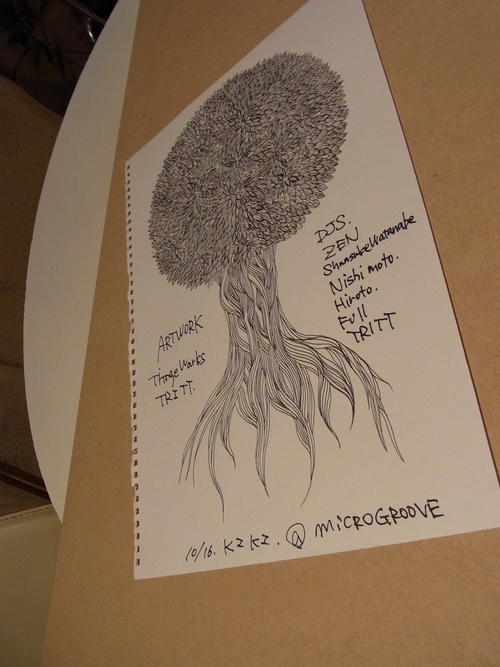 DJS.
ZEN
Shunsuke Watanabe
Nishimoto.
Hiroto.
Full
TRITT
ARTWORK
TRITT.
10/16. KIKI. @ MiCROGROOVE